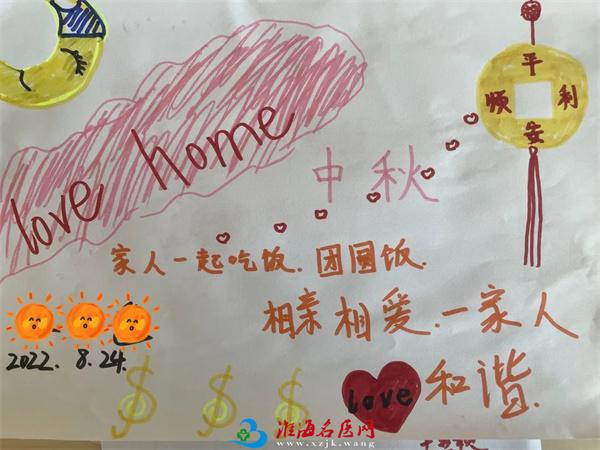 love home
平
顺 利
安
中秋
家人一起吃饭.团圆饭.
相亲相爱.一家人
2022. 8.24.
$ $ $
love 和谐.
淮海名医网
www.xzjk.wang